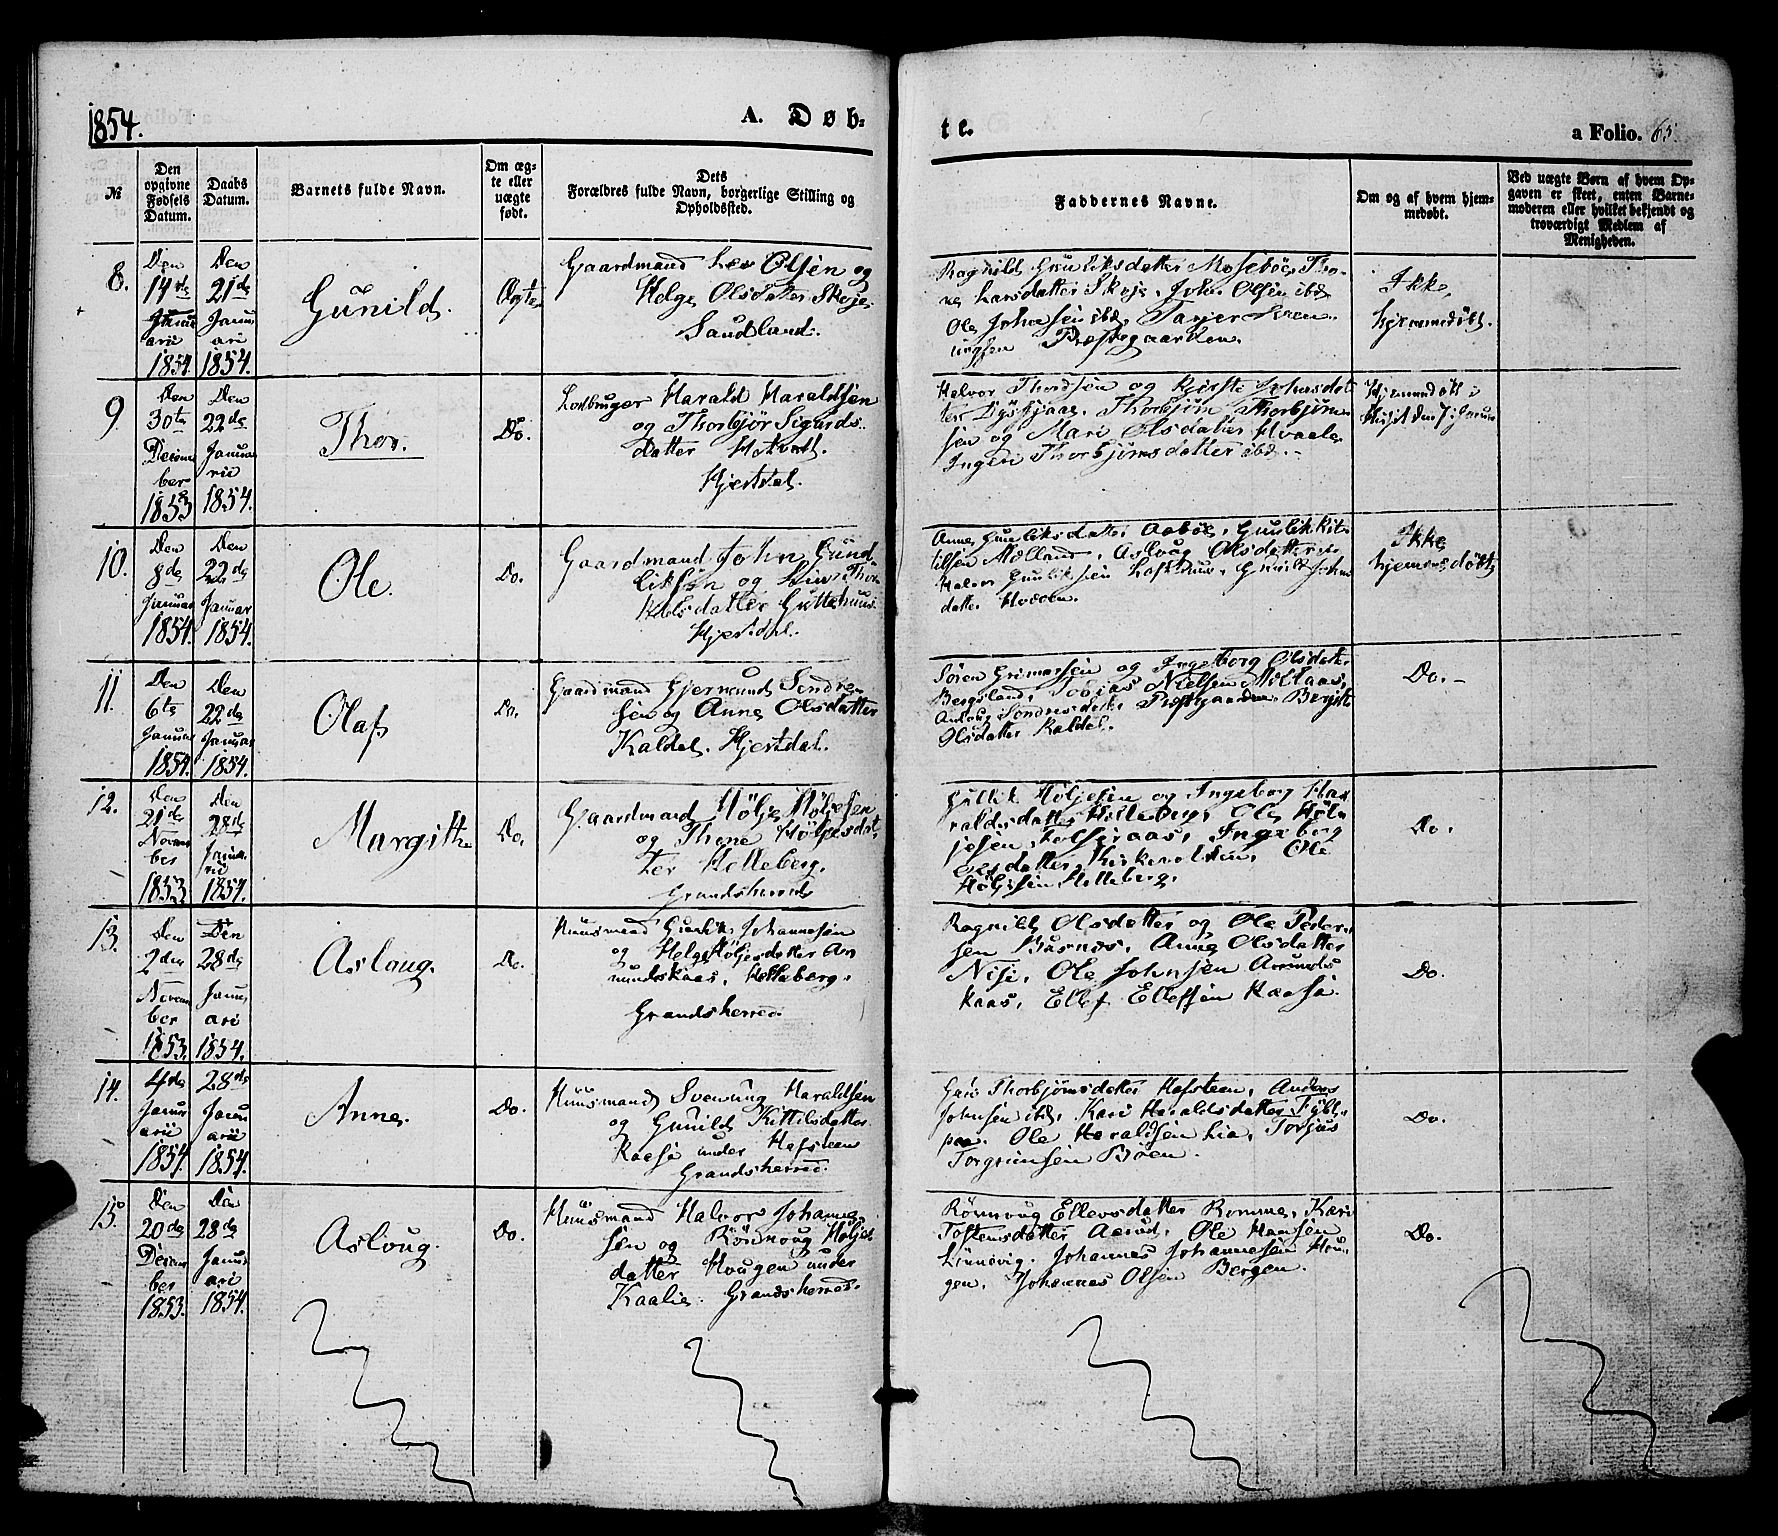 1854.
A. Døb-
te.
a Folio. 65.
№
Den opgivne Fødsels Datum.
Daabs Datum.
Barnets fulde Navn.
Om ægte eller uægte født.
Dets Forældres fulde Navn, borgerlige Stilling og Opholdssted.
Faddernes Navne.
Om og af hvem hjemmedøbt.
Ved uægte Børn af hvem Opgaven er skeet, enten Barnemoderen eller hvilket bekjendt og troværdigt Medlem af Menigheden.
8.
Den
14de
Januarii
1854.
Den
21de
Januari
1854.
Gunild.
Ægte
Gaardmand Lev Olsen og
Helge Olsdatter Skoje
Saudland.
Ragnild Gunliksdatter Mosebøe, Tho-
ne Larsdatter Skoje, John Olsen ibd
Ole Johnsen ibd. Tarjer
Præstegaarden.
Ikke
hjemmedøbt.
9.
Den
30te
December
1853
Den
22de
Januarie
1854.
Thor.
Do.
Harald Haraldsen
og Thorbjør Sigurds-
datter
Hjertdal.
Halvor Thordsen og Kjersti Johnsdat
ter Thorbjørn Thorbjørn-
sen og Mari Olsdatter Hvaale
Ingeri Thorbjørnsdatter ibd.
Hjemmedøbt
10.
Den
8de
Januar
1854.
Den
22de
Januar
1854.
Ole.
Do.
Gaardmand John Gund-
liksen og Liv Thor-
kelsdatter Guttehuus
Hjertdal.
Anne Gunliksdatter Aabøe, Gunlik Kit-
tilsen Mælland, Asloug Olsdatter
Halvor Gunliksen Lofthuus, Gunild
datter
Ikke
hjemmedøbt
11.
Den
6te
Januar
1854.
Den
22de
Januar
1854.
Olaf
Do.
Gaardmand Gjermund Sondre
sen og Anne Olsdatter
Kaldal. Hjertdal.
Søren Grimarsen og Ingeborg Olsdatter
Bergsland, Tobias Nielsen
Asloug Sondresdatter Præstgaarden, Bergit
Olsdatter Kaldal.
Do.
12.
Den
21de
November
1853
Den
28de
Januarie
1854.
Margith
Do.
Gaardmand Høljе Høljesen
og Thone Høljesdat-
ter Helleberg.
Gransherred
Gullik Høljesen og Ingeborg Ha-
raldsdatter Helleberg, Ole Høl-
jesen Ingeborg
Ole
Høljesen Helleberg.
Do.
13.
Den
2den
November
1853.
Den
28de
Januari
1854.
Aslaug.
Do.
Huusmand Gunlik Johannesen
og Helge Høljesdatter Ar
nundskaas, Helleberg.
Grandsherred.
Ragnild Olsdatter og Ole Peder-
sen Busnæs, Anne Olsdatter
Nisi, Ole Johnsen Arnunds
kaas, Ellef Ellefsen Kaasa.
Do.
14.
4de
Januarii
1854.
28de
Januarii
1854.
Anne.
Do.
Huusmand Svenung Haraldsen
og Gunild Kittilsdatter
Kaasa under Hafsteen
Grandsherred.
Thorbjørnsdatter Hafsteen, Anders
Johnsen ibd, Kari Haraldsdatter
Ole Haraldsen Lia, Torjus
Torgrimsen Bøen.
Do.
15.
Den
20de
December
1853.
Den
28de
Januari
1854.
Asloug.
Do.
Huusmand Halvor Johanne
sen og Rønnoug Høljes
datter Hougen under
Kaalie. Grandsherred.
Rønnoug Ellevsdatter Romme, Kari
Tostensdatter Aarud, Ole Hansen
Johannes Johannesen Hou-
gen, Johannes Olsen Bergen.
Do.